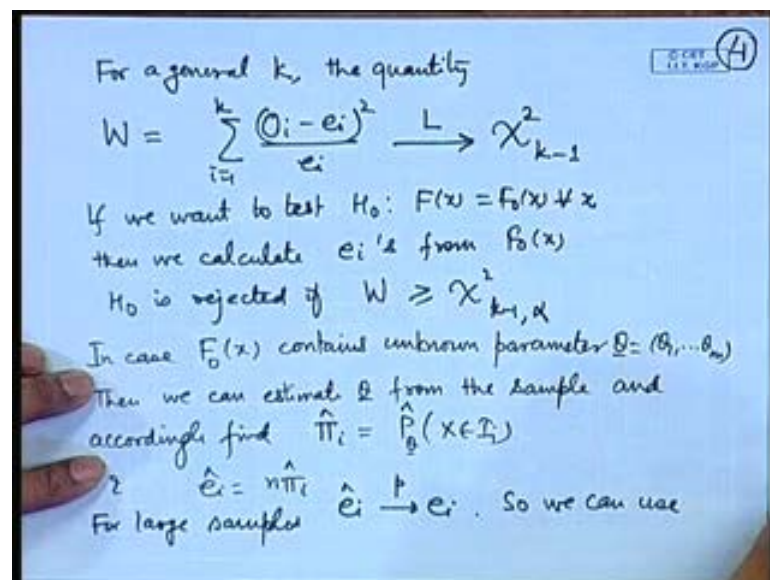 For a general k, the quantity
W = Σ_{i=1}^{k} (O_i - e_i)² / e_i →^L χ²_{k-1}
If we want to test H₀: F(x) = F₀(x) ∀ x
then we calculate e_i's from F₀(x)
H₀ is rejected if W ≥ χ²_{k-1, α}
In case F₀(x) contains unknown parameter θ = (θ₁, ... θ_m)
Then we can estimate θ from the sample and
accordingly find π̂_i = P̂_θ (X ∈ I_i)
& ê_i = nπ̂_i
For large samples ê_i →^p e_i. So we can use
© CET
I.I.T. KGP
4